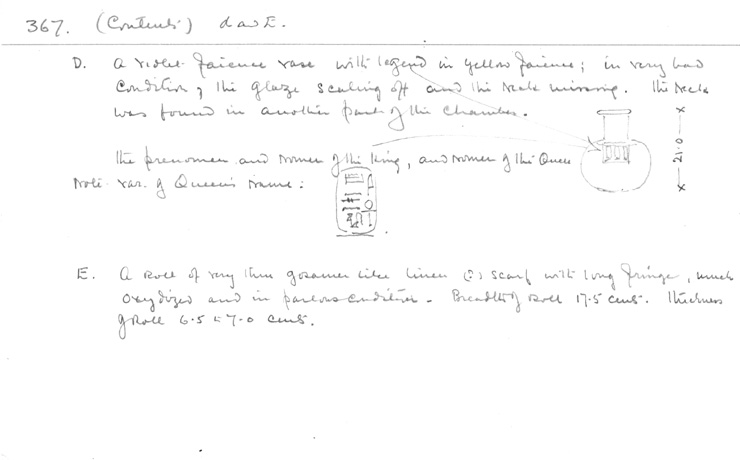 367. (Contents) D and E.
D. A violet faience vase with legend in yellow faience; in very bad
condition, the glaze scaling off and the neck missing. The neck
was found in another part of the chamber.
21.0
The prenomen and nomen of the King, and nomen of the Queen
Note var. of Queen's name:
E. A roll of very thin gossamer like linen (?) scarf with long fringe, much
oxydized and in parlous condition. Breadth of roll 17.5 cents. Thickness
of Roll 6.5 to 7.0 cents.